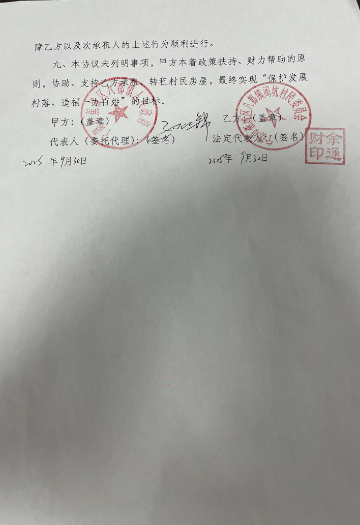 障乙方以及次承租人的上述行为顺利进行。
九、本协议未列明事项，甲方本着政策扶持、财力帮助的原
则，协助、支持乙方承租、转租村民房屋，最终实现“保护发展
村落、造福一方百姓”的目标。
甲方：（盖章） 乙方：（盖章）
代表人（委托代理）：（签名） 法定代表人：（签名）
2015年9月30日 2015年9月30日
余通
财印